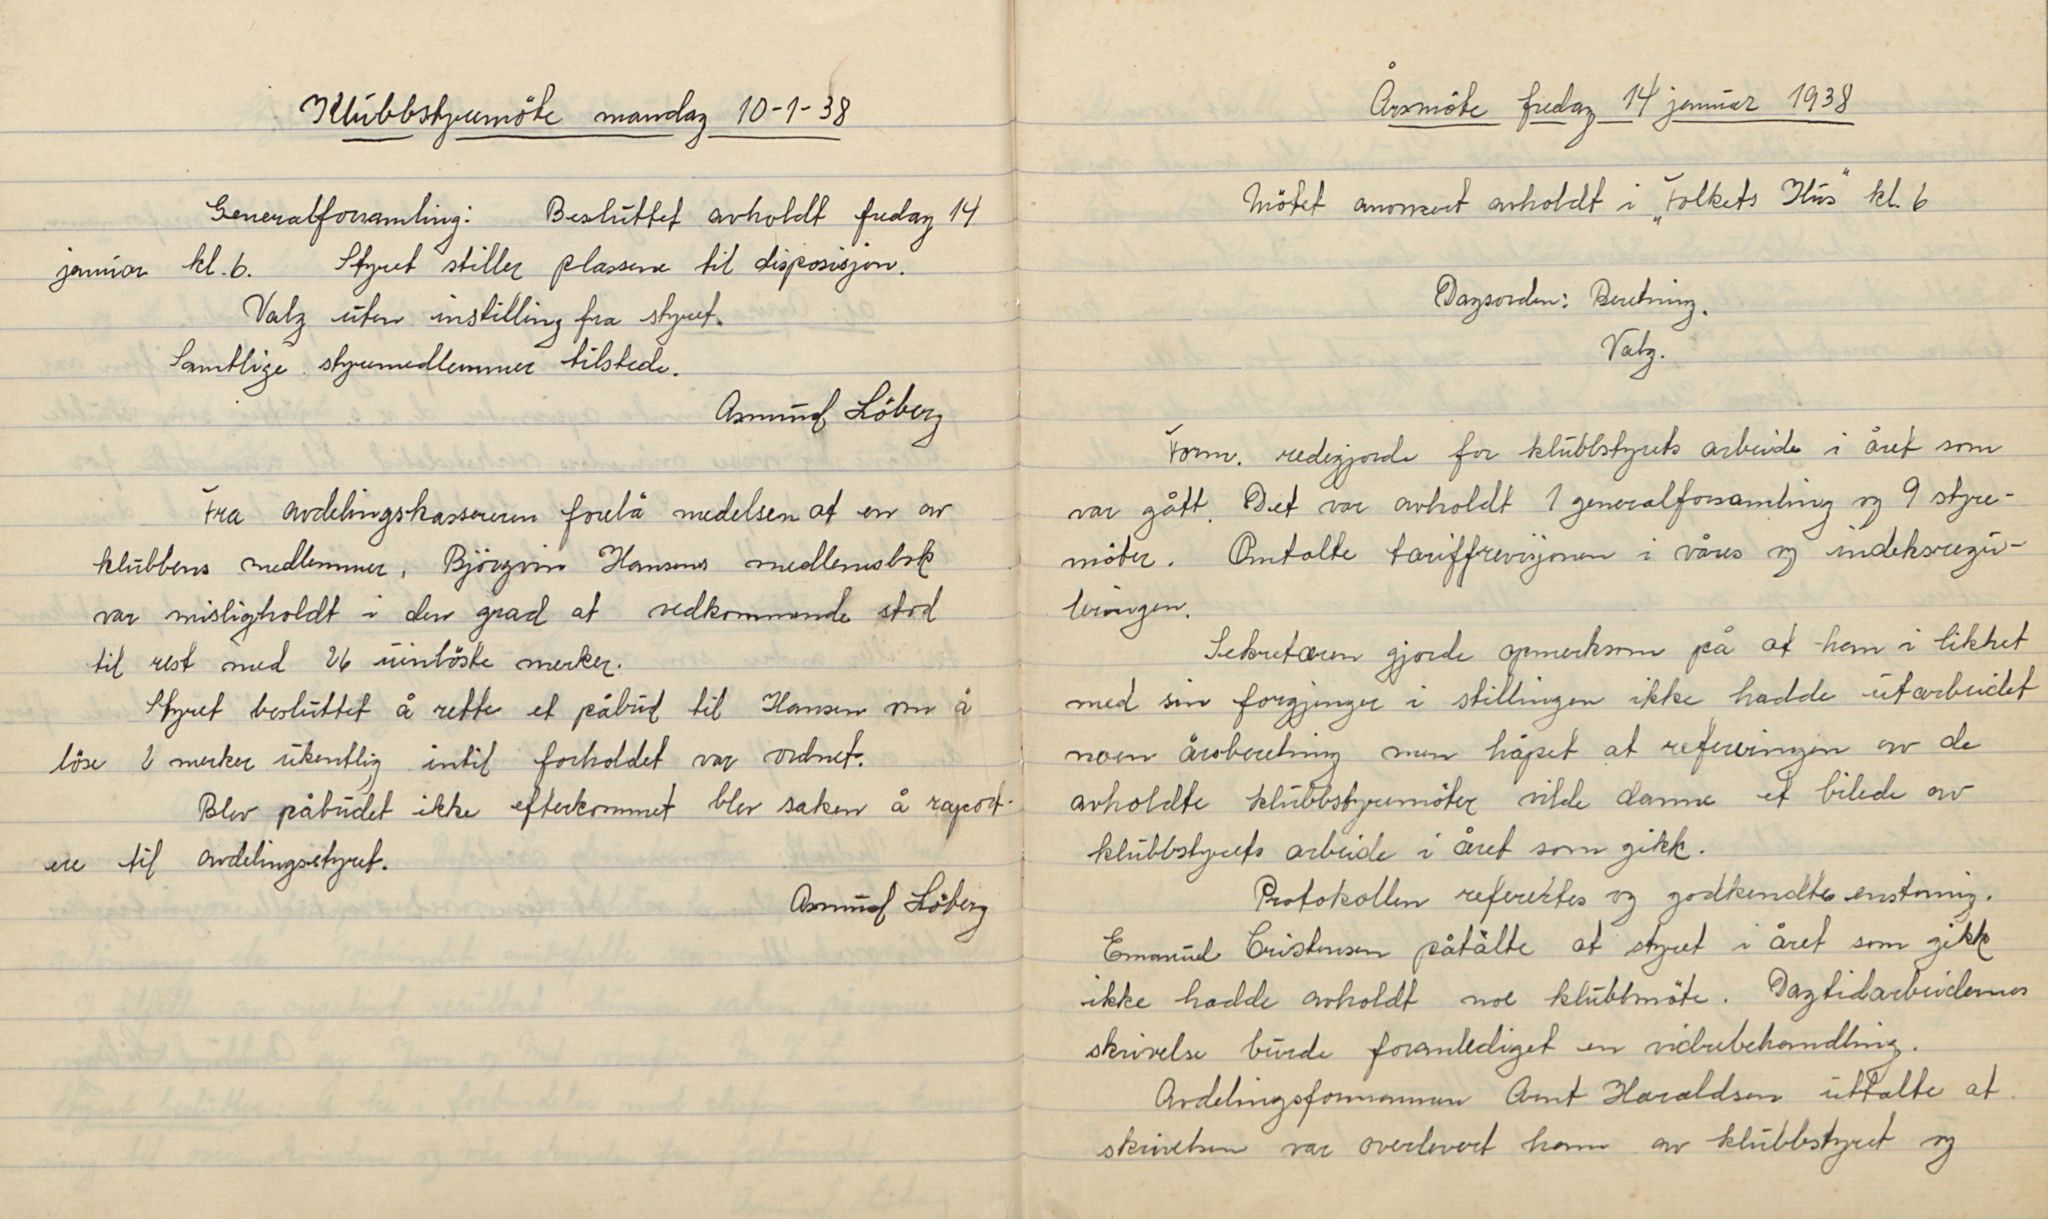 Klubbstyremöte mandag 10-1-38
Generalforsamling: Besluttet avholdt fredag 14
januar kl. 6. Styret stiller plassene til disposisjon.
Valg uten instilling fra styret.
Samtlige styremedlemmer tilstede.
Asmund Löberg
Fra avdelingskassereren forelå medelsen at en av
klubbens medlemmer, Björgvin Hansens medlemsbok
var misligholdt i den grad at vedkommende stod
til rest med 26 uinlöste merker.
Styret besluttet å rette et påbud til Hansen om å
löse 2 merker ukentlig intil forholdet var ordnet.
Blev påbudet ikke efterkommet blev saken å raport-
ere til avdelingsstyret.
Asmund Löberg
Årsmöte fredag 14 januar 1938
Mötet anonsert avholdt i „Folkets Hus" kl. 6
Dagsorden: Beretning.
Valg.
Form. redegjorde for klubbstyrets arbeide i året som
var gått. Det var avholdt 1 generalforsamling og 9 styre-
möter. Omtalte tariffrevisjonen i våres og indeksregu-
leringen.
Sekretæren gjorde opmerksom på at han i likhet
med sin forgjenger i stillingen ikke hadde utarbeidet
noen årsberetning men håpet at refereringen av de
avholdte klubbstyremöter vilde danne et bilede av
klubbstyrets arbeide i året som gikk.
Protokollen refertes og godkendtes enstemig.
Emanuel Cristensen påtalte at styret i året som gikk
ikke hadde avholdt noe klubbmöte. Dagtidarbeidernes
skrivelse burde foranlediget en videbehandling.
Avdelingsformannen Arnt Haraldsen uttalte at
skrivelsen var overlevert ham av klubbstyret og